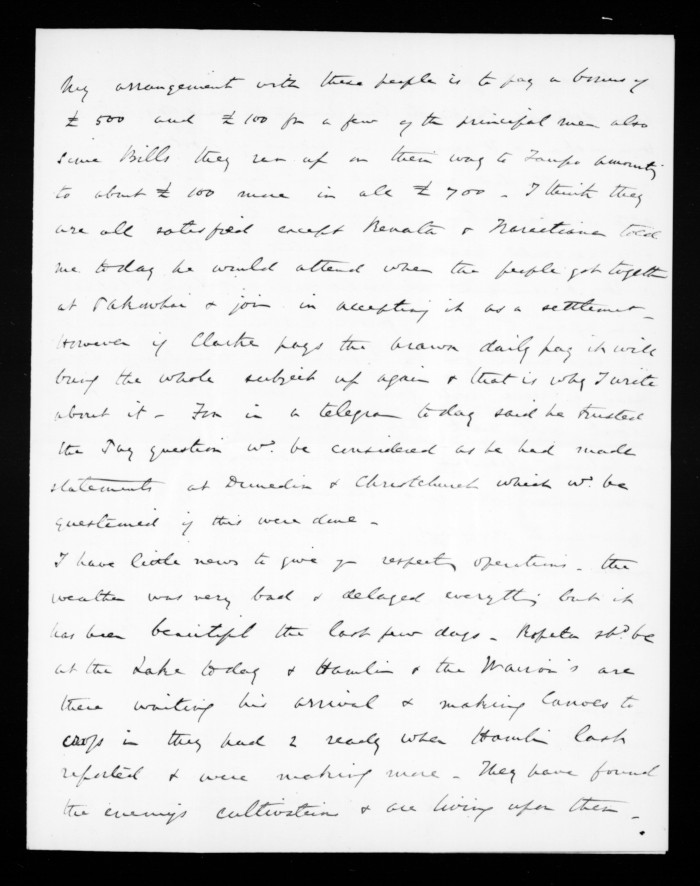 My arrangement with these people is to pay a bonus of
£500 and £100 for a few of the principal men also
some Bills they ran up on their way to Taupo amountg
to about £100 more in all £700 - I think they
are all satisfied except Renata & Karaitiana told
me today he would attend when the people got together
at Pakowhai & join in accepting it as a settlement -
However if Clarke pays the Arawa daily pay it will
bring the whole subject up again & that is why I write
about it - Fox in a telegram today said he trusted
the Pay question wd. be considered as he had made
statements at Dunedin & Christchurch which wd. be
questioned if this were done -
I have little news to give yr respectg operations - the
weather was very bad & delayed everything but it
has been beautiful the last few days - Ropata shd. be
at the Lake today & Hamlin & the Wairoa's are
there waiting his arrival & making Canoes to
cross in they had 2 ready when Hamlin last
reported & were making more - They have found
the enemys cultivations & are living upon them -